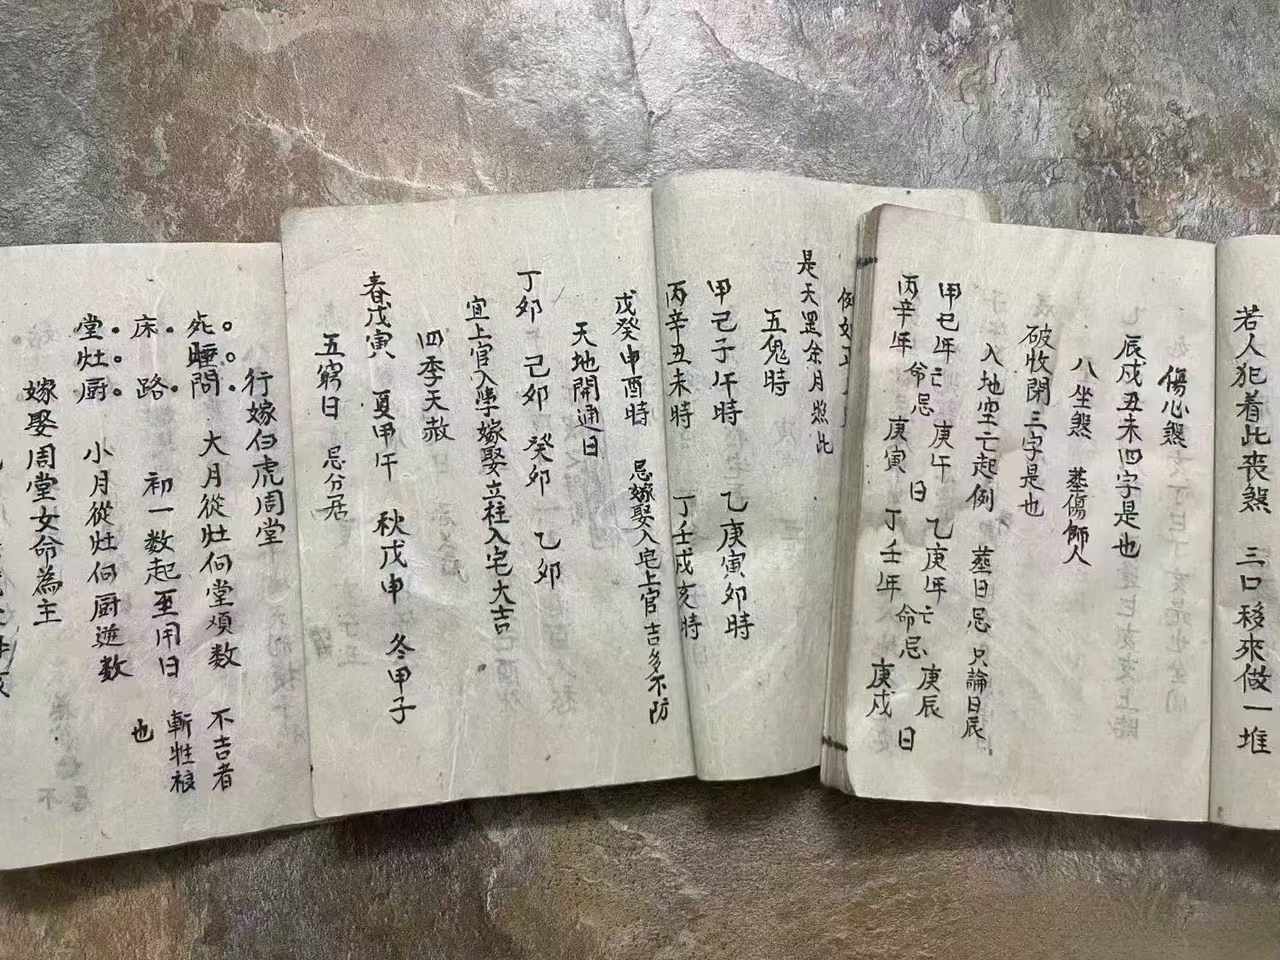 若人犯着此丧煞　三口移來做一堆
傷心煞
辰戍丑未四字是也
八坐煞　葬傷師人
破收閉三字是也
入地空亡起例　葬日忌只論日辰
甲己年亡命忌庚午　乙庚年亡命忌庚辰日
丙辛年　庚寅日　丁壬年　庚戍日
例如正
是天罡余月照此
五鬼時
甲己子午時　乙庚寅卯時
丙辛丑未時　丁壬戍亥時
戊癸申酉時　忌嫁娶入宅上官吉多不防
天地開通日
丁卯　己卯　癸卯　乙卯
宜上官入學嫁娶立柱入宅大吉
四季天赦
春戊寅　夏甲午　秋戊申　冬甲子
五窮日　忌分居
行嫁白虎周堂
死睡門　大月從灶向堂順數　不吉者
床路　初一数起至用日　斬牲禳
堂灶厨　小月從灶向厨逆数　也
嫁娶周堂女命為主